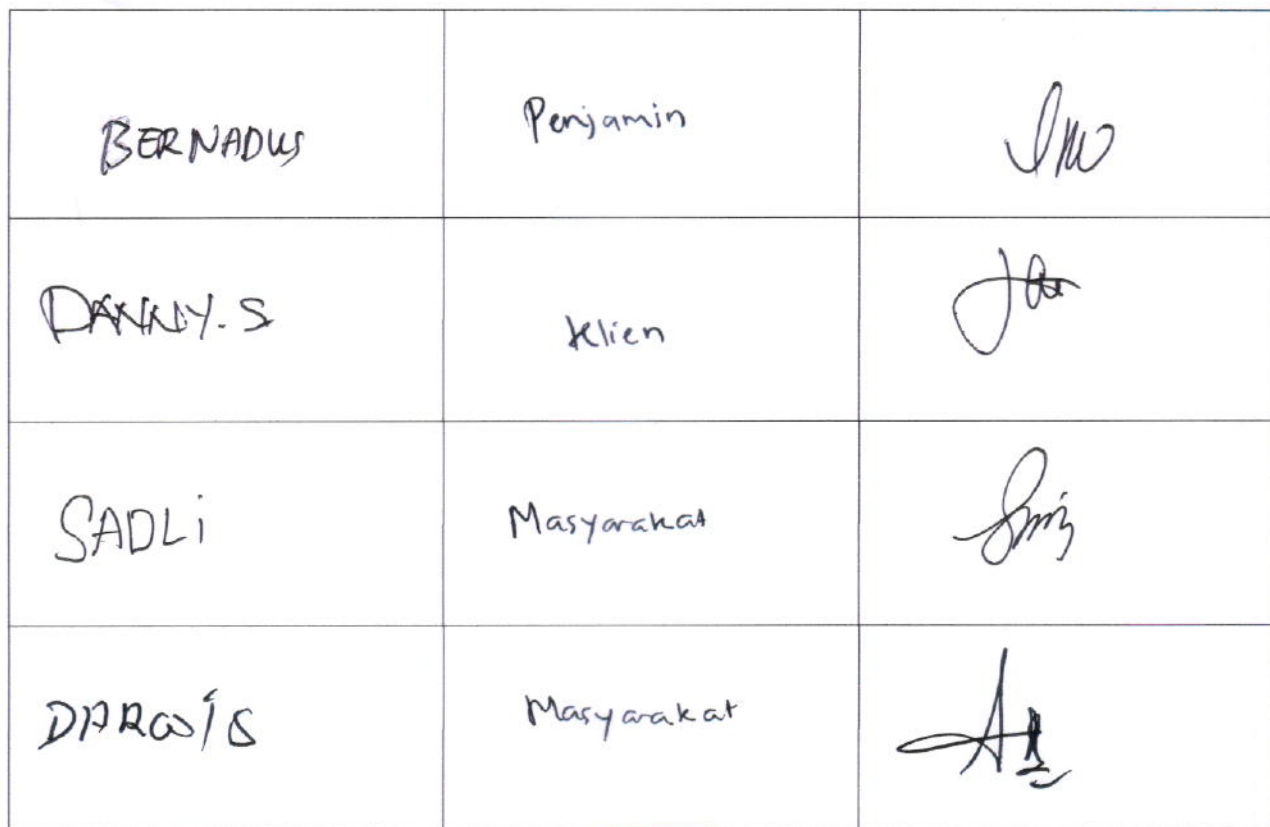 BERNADUS Penjamin
DANNY.S Klien
SADLi Masyarakat
DARWIS Masyarakat